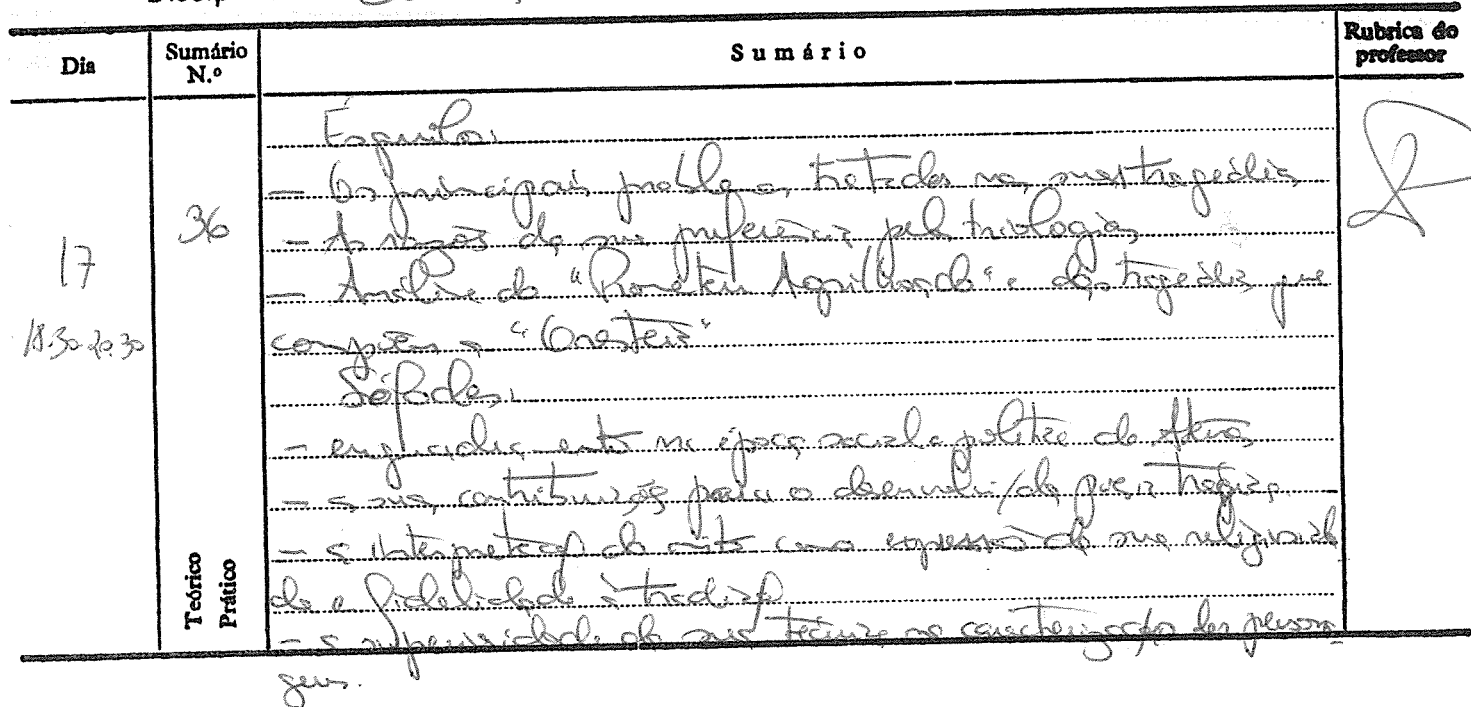 Dia
Sumário N.º
Sumário
Rubrica do professor
17
18.30-20.30
36
Teórico
Prático
Ésquilo:
- Os principais problemas tratados nas suas tragédias
- As razões da sua preferência pela triologia
- Análise do "Prometeu Agrilhoado" e das tragédias que
compõem a "Oresteia"
Sófocles:
- enquadramento na época social e política de Atenas
- a sua contribuição para o desenvolvi/ da poesia trágica
- a interpretação do mito como expressão da sua religiosida
de e fidelidade à tradição
- a superioridade da sua técnica na caracterização das persona
gens.